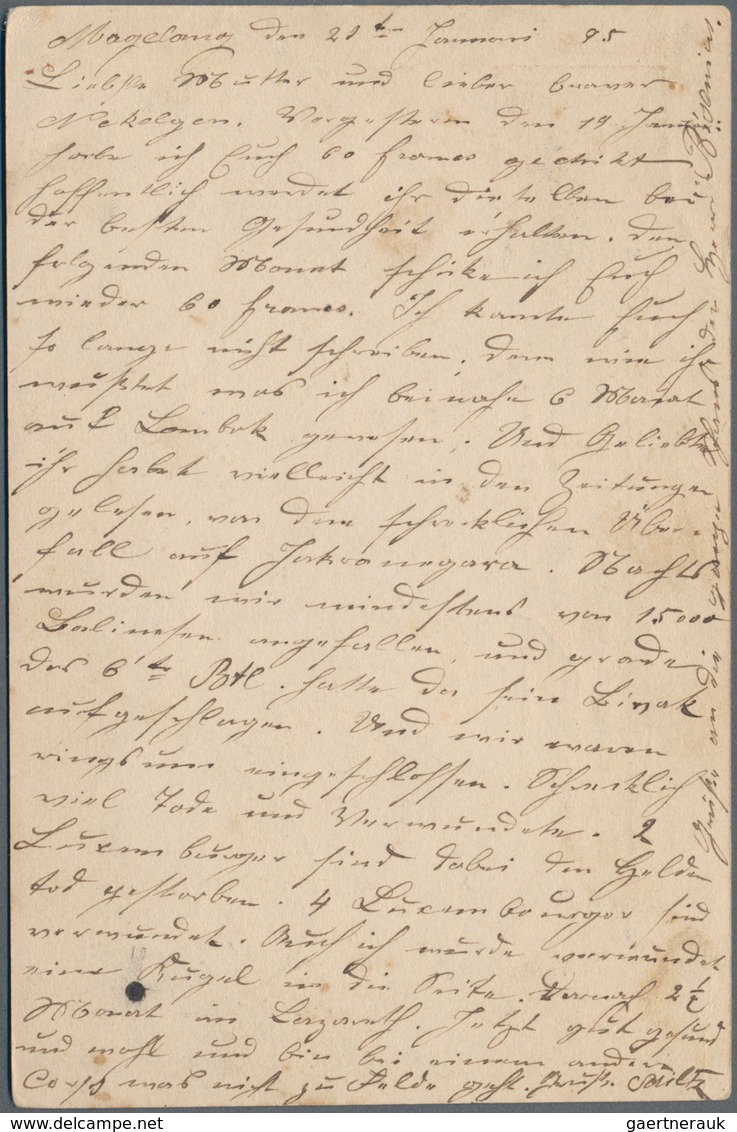 Magelang den 21ten Januari 95
Liebste Mutter und lieber braver
Nekelgen. Vorgestern den 19 Januar
habe ich Euch 60 francs geschikt
hoffentlich werdet ihr dieselben bei
der besten Gesundheit erhalten. Den
folgenden Monat schicke ich Euch
wieder 60 francs. Ich kannte Euch
so lange nicht schreiben, denn wie ihr
wußtet was ich beinahe 6 Monat
auf Lombok gewesen. Und Geliebte
ihr habet vielleicht in den Zeitungen
gelesen, von dem schrecklichen Über-
fall auf Jakranegara. Nachts
wurden wir mindestens von 15000
Balinesen angefallen, und grade
das 6te Btl. hatte da sein Bivak
aufgeschlagen. Und wir waren
ringsum eingeschlossen. Schrecklich
viel Tode und Verwundete. 2
Luxemburger sind dabei den Helden
tod gestorben. 4 Luxembourger sind
verwundet. Auch ich wurde verwundet
eine Kugel in die Seite. Darnach 2 1/2
Monat im Lazareth. Jetzt gut gesund
und wohl und bin bei einem andern
Corps was nicht zu Felde geht.
Grüße an die ganze